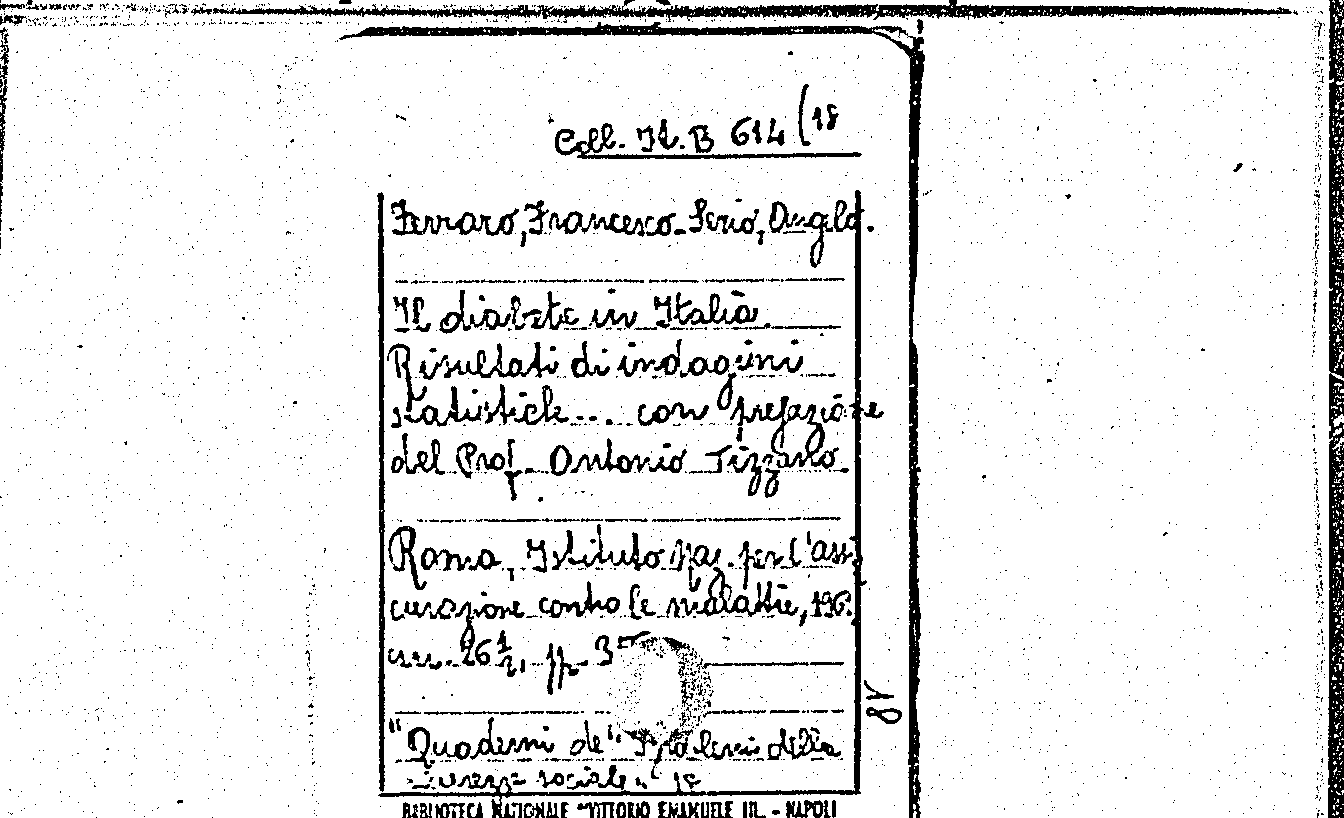 Coll. It. B 614 (18
Ferraro, Francesco - Serio, Angelo.
Il diabete in Italia.
Risultati di indagini
statistich... con prefazione
del Prof. Antonio Tizzano.
Roma, Istituto Naz. per l'assi
curazione contro le malattie, 196.,
cm. 26 1/2, pp. 35
"Quaderni de "I problemi della
sicurezza sociale" 18
18
BIBLIOTECA NAZIONALE "VITTORIO EMANUELE III. - NAPOLI